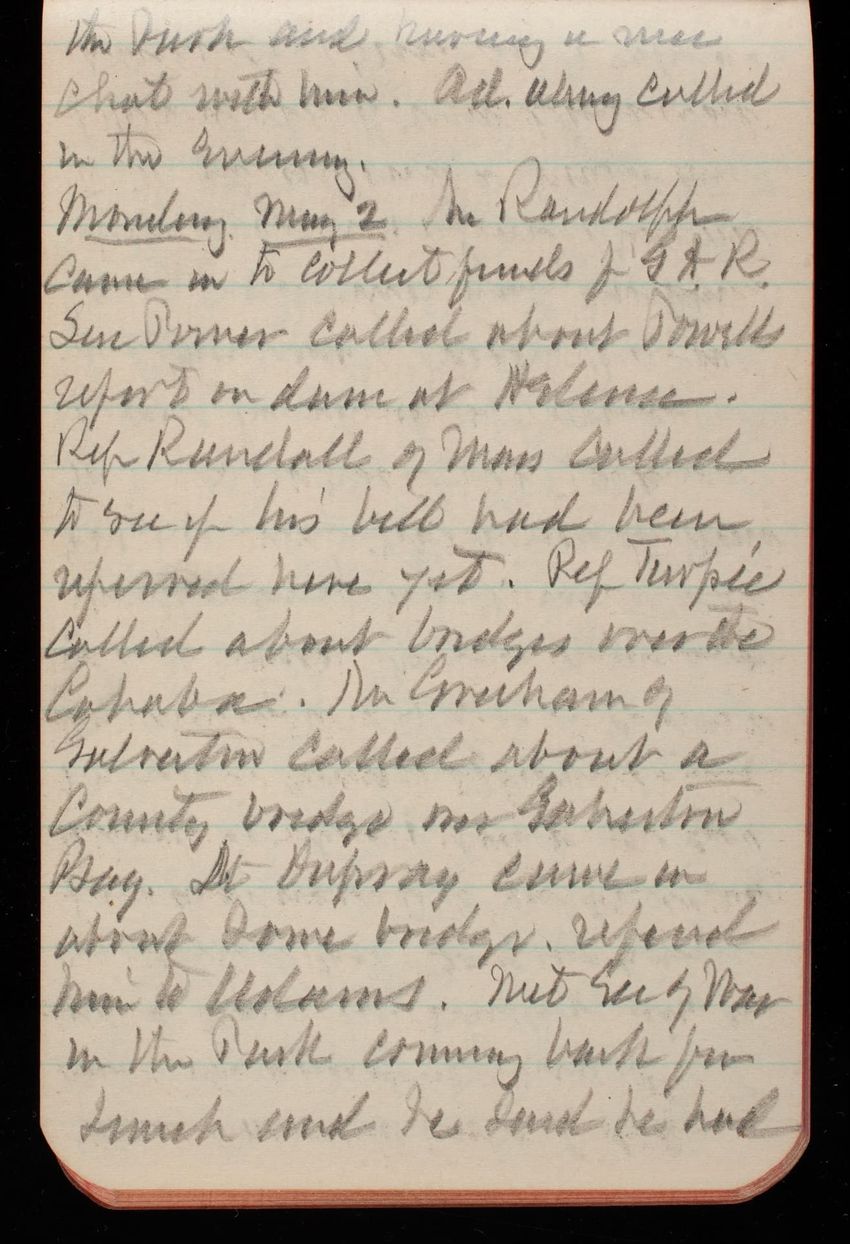 the Park and having a nice
chat with him. Ad. along called
in the Evening.
Monday May 2. Mr Randolph
came in to collect funds f G A. R.
Sen Power called about Powells
report on dam at Helena.
Rep Randall of Mass called
to see if his bill had been
referred here yet. Rep Turpie
called about bridges over the
Cahaba. Mr Gresham of
Galveston called about a
County bridge over Galveston
Bay. Lt Dupray came in
about Some bridge. referred
him to Adams. Met Sec of War
in the Park coming back from
lunch and he said he had